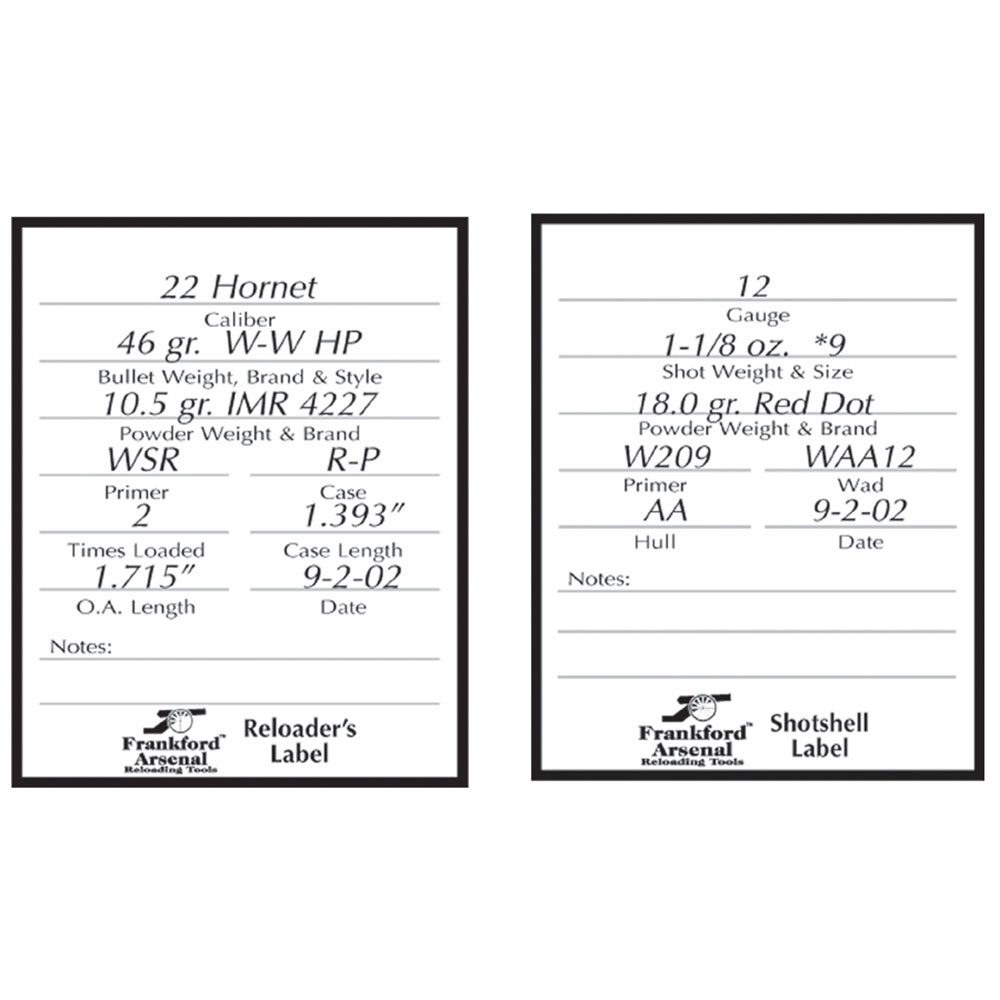 22 Hornet
Caliber
46 gr. W-W HP
Bullet Weight, Brand & Style
10.5 gr. IMR 4227
Powder Weight & Brand
WSR R-P
Primer Case
2 1.393"
Times Loaded Case Length
1.715" 9-2-02
O.A. Length Date
Notes:
Frankford™
Arsenal
Reloading Tools
Reloader's
Label
12
Gauge
1-1/8 oz. *9
Shot Weight & Size
18.0 gr. Red Dot
Powder Weight & Brand
W209 WAA12
Primer Wad
AA 9-2-02
Hull Date
Notes:
Frankford™
Arsenal
Reloading Tools
Shotshell
Label